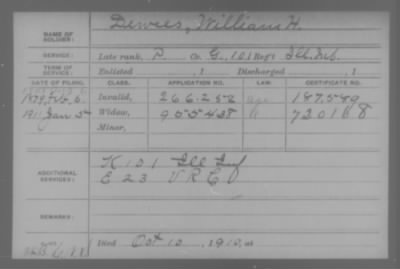 NAME OF SOLDIER: Dewees, William H.
SERVICE: Late rank, P Co. G, 101 Reg't Ill. Inf.
TERM OF SERVICE: Enlisted , 1 Discharged , 1
DATE OF FILING. CLASS. APPLICATION NO. LAW. CERTIFICATE NO.
1879, Feb. 6. Invalid, 266.252 187.589
1911 Jan 5 Widow, 955438 730168
Minor,
ADDITIONAL SERVICES: K 101 Ill Inf
E 23 V R C
REMARKS:
Died Oct 10, 1910, at